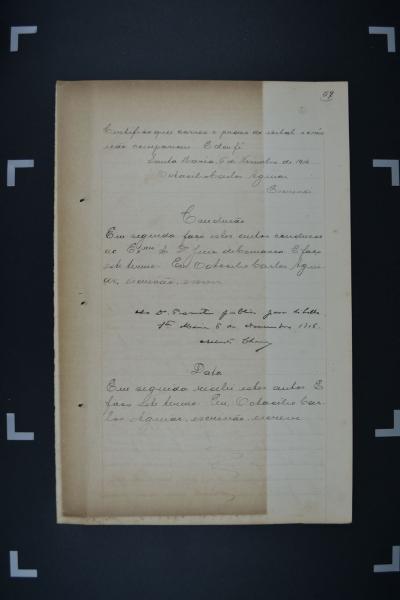 59
Certifico que correu o prazo do edital e não
compareceu. E dou fé
Santa Maria, 6 de Novembro de 1916
Octacilio Carlos Aguiar
Escrivão
Conclusão
Em seguida faço estes autos conclusos
ao Exmo Sr Dr Juiz da Comarca. E faço
este termo. Eu, Octacilio Carlos Agui
ar, escrivão, escrevi
Ao Dr. Promotor Publico
Sta Maria 6 de Novembro 1916.
Data
Em seguida recebi estes autos. E
faço este termo. Eu, Octacilio Car
los Aguiar, escrivão, escrevi